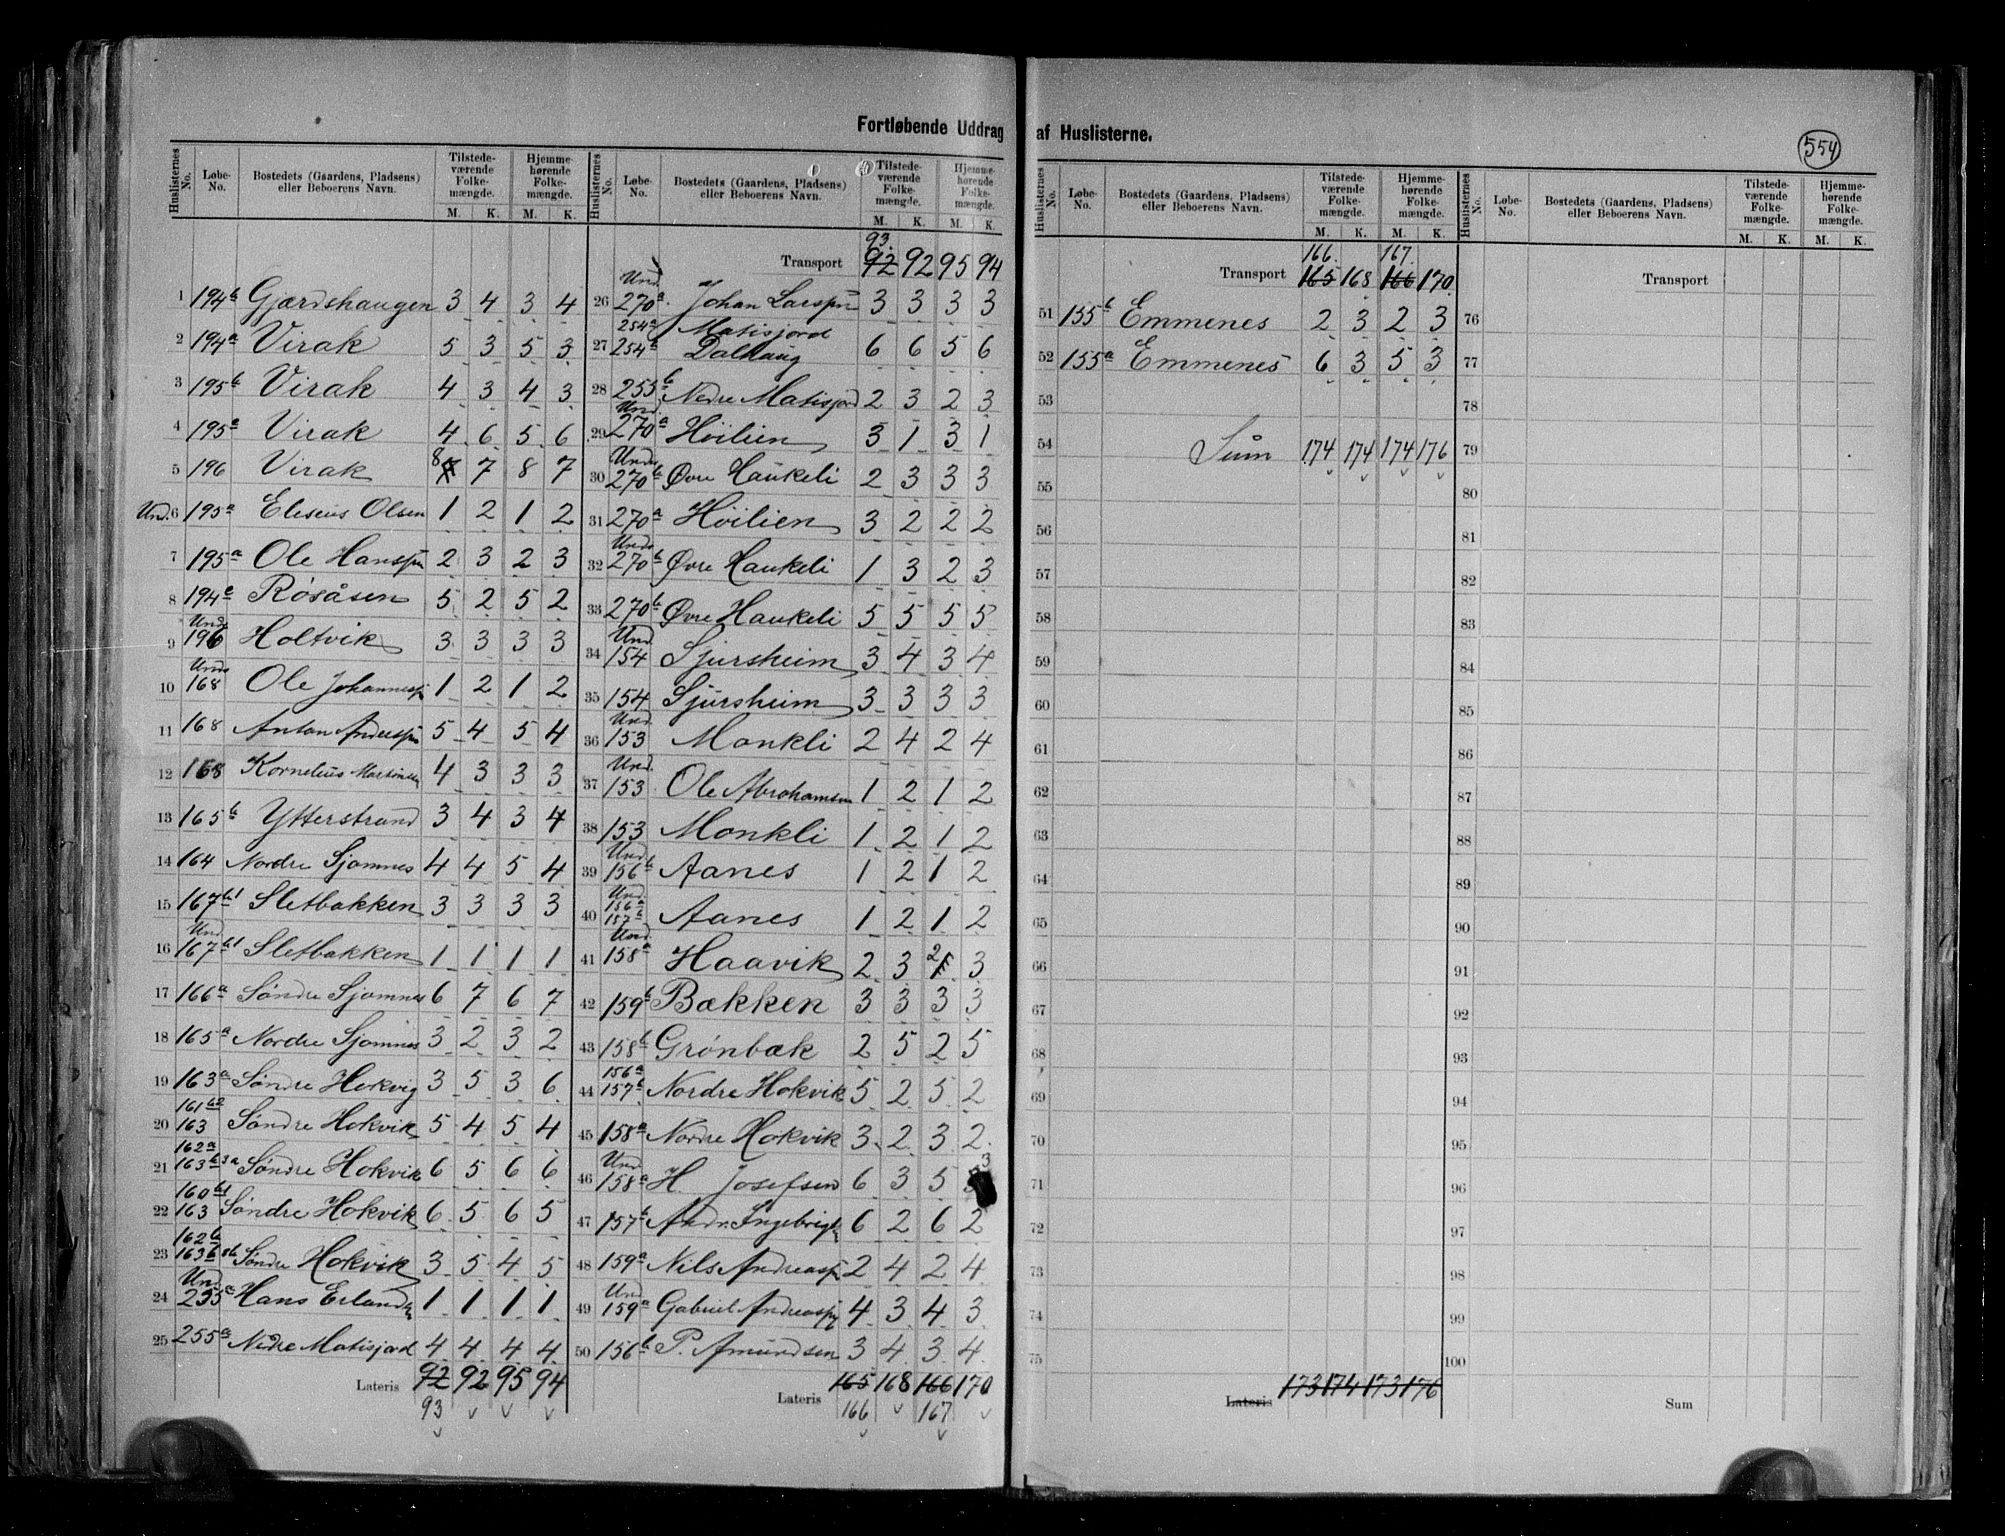 Fortløbende Uddrag af Huslisterne.
554
Huslisternes No. Løbe-No. Bostedets (Gaardens, Pladsens) eller Beboerens Navn. Tilstedeværende Folkemængde. M. K. Hjemmehørende Folkemængde. M. K.
1 194b Gjærdshaugen 3 4 3 4
2 194a Virak 5 3 5 3
3 195b Virak 4 3 4 3
4 195a Virak 4 6 5 6
5 196 Virak 8 7 8 7
Und. 6 195a Eliseus Olsen 1 2 1 2
7 195a Ole Hanssen 2 3 2 3
8 194c Røsåsen 5 2 5 2
9 Und. 196 Holtvik 3 3 3 3
10 Und. 168 Ole Johannessen 1 2 1 2
11 168 Anton Anderssen 5 4 5 4
12 168 Kornelius 4 3 3 3
13 165b Ytterstrand 3 4 3 4
14 164 Nordre Sjomnes 4 4 5 4
15 167b1 Sletbakken 3 3 3 3
16 Und. 167b1 Sletbakken 1 1 1 1
17 166a Søndre Sjomnes 6 7 6 7
18 165a Nordre Sjomnes 3 2 3 2
19 163a Søndre Hokvig 3 5 3 6
20 161b2 163 Søndre Hokvik 5 4 5 4
21 162a 163b 3a Søndre Hokvik 6 5 6 6
22 160b1 163 Søndre Hokvik 6 5 6 5
23 162b 163b Søndre Hokvik 3 5 4 5
24 Und. 255a Hans Erlandsen 1 1 1 1
25 255a Nedre Matisjord 4 4 4 4
Lateris 92 92 95 94
93
Huslisternes No. Løbe-No. Bostedets (Gaardens, Pladsens) eller Beboerens Navn. Tilstedeværende Folkemængde. M. K. Hjemmehørende Folkemængde. M. K.
93.
Transport 92 92 95 94
26 Und. 270a Johan Larssen 3 3 3 3
27 254a 254b Matisjord Dalhaug 6 6 5 6
28 255b Nedre Matisjord 2 3 2 3
29 Und. 270a Høilien 3 1 3 1
30 Und. 270b Øvre Haukeli 2 3 3 3
31 270a Høilien 3 2 2 2
32 Und. 270b Øvre Haukeli 1 3 2 3
33 270b Øvre Haukeli 5 5 5 5
34 Und. 154 Sjursheim 3 4 3 4
35 154 Sjursheim 3 3 3 3
36 Und. 153 Monkli 2 4 2 4
37 Und. 153 Ole Abrahamsen 1 2 1 2
38 153 Monkli 1 2 1 2
39 Und. 156b Aanes 1 2 1 2
40 Und. 156a 157b Aanes 1 2 1 2
41 Und. 158a Haavik 2 3 2 3
42 159b Bækken 3 3 3 3
43 158b Grønbæk 2 5 2 5
44 156a 157b Nordre Hokvik 5 2 5 2
45 158a Nordre Hokvik 3 2 3 2
46 Und. 158a H. Josefsen 6 3 5 3
47 157b Andr. Ingebrigts 6 2 6 2
48 159a Nils Andreassen 2 4 2 4
49 Und. 159a Gabriel Andreassen 4 3 4 3
50 156b P. Amundsen 3 4 3 4
Lateris 165 168 166 170
166 167
Huslisternes No. Løbe-No. Bostedets (Gaardens, Pladsens) eller Beboerens Navn. Tilstedeværende Folkemængde. M. K. Hjemmehørende Folkemængde. M. K.
166. 167.
Transport 165 168 166 170
51 155b Emmenes 2 3 2 3
52 155a Emmenes 6 3 5 3
53
54 Sum 174 174 174 176
55
56
57
58
59
60
61
62
63
64
65
66
67
68
69
70
71
72
73
74
75
Lateris 173 174 173 176
Huslisternes No. Løbe-No. Bostedets (Gaardens, Pladsens) eller Beboerens Navn. Tilstedeværende Folkemængde. M. K. Hjemmehørende Folkemængde. M. K.
Transport
76
77
78
79
80
81
82
83
84
85
86
87
88
89
90
91
92
93
94
95
96
97
98
99
100
Sum